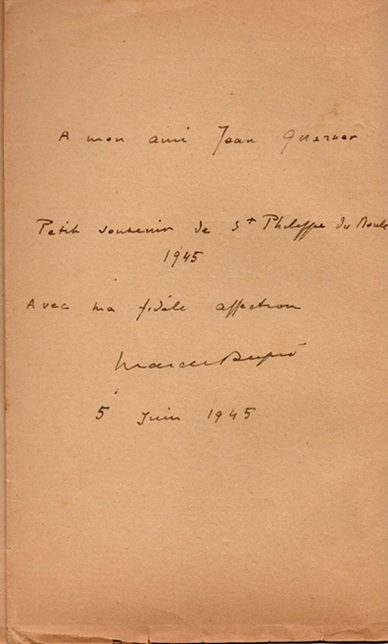 A mon ami Jean Querner
Petit souvenir de St Philippe du Roule
1945
Avec ma fidèle affection
Marcel Dupré
5 Juin 1945